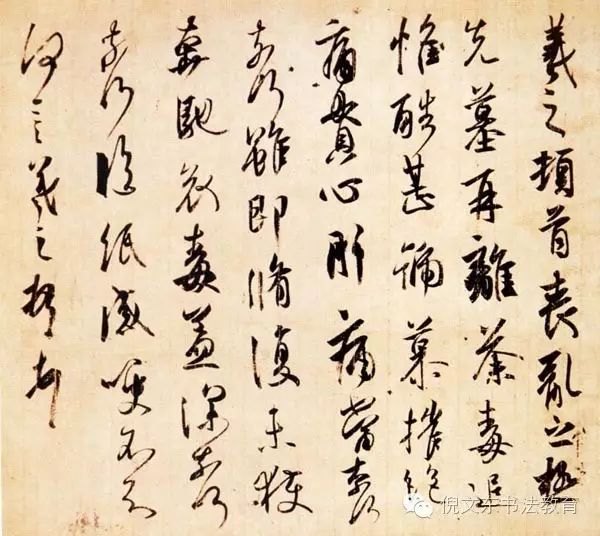 羲之頓首喪亂之極
先墓再離荼毒追
惟酷甚號慕摧絕
痛貫心肝痛當奈何
奈何雖即脩復未獲
奔馳哀毒益深奈何
奈何臨紙感哽不知
何言羲之頓首頓首
倪文东书法教育